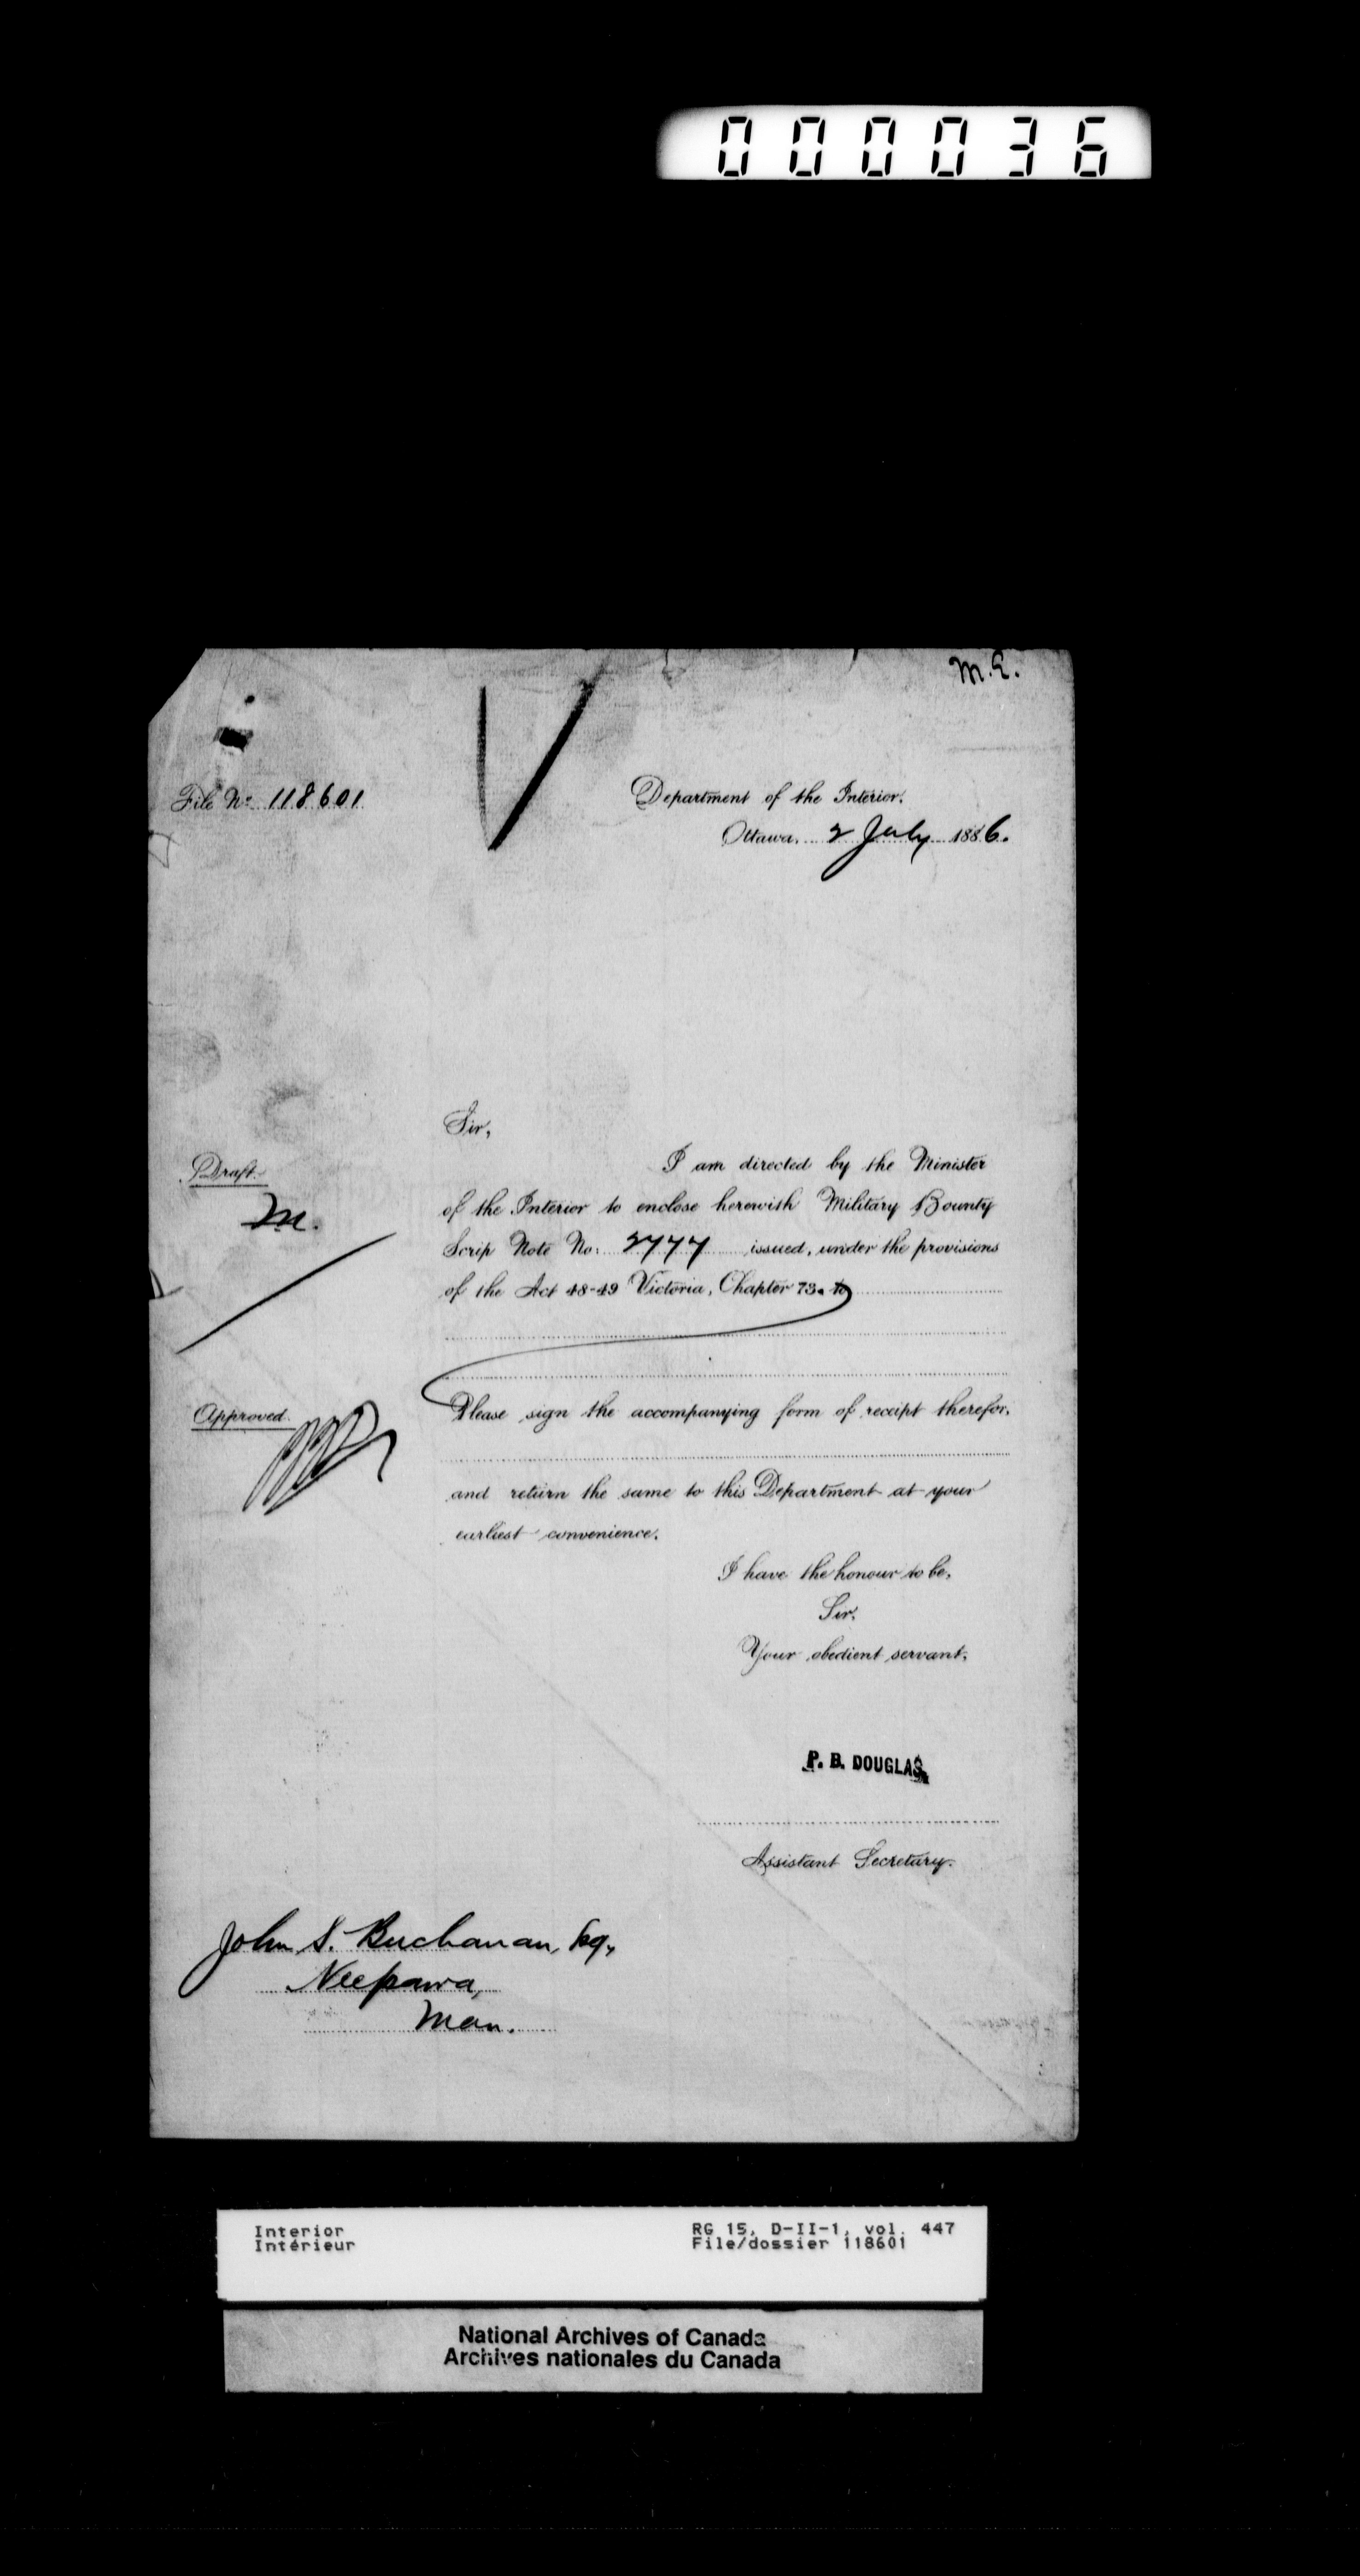 000036
M.E.
File No. 118601
Department of the Interior.
Ottawa. 2 July 1886.
Sir,
I am directed by the Minister
of the Interior to enclose herewith Military Bounty
Scrip Note No. 2777 issued, under the provisions
of the Act 48-49 Victoria, Chapter 73.
Draft.
M.
Please sign the accompanying form of receipt therefor,
Approved.
and return the same to this Department at your
earliest convenience.
I have the honour to be,
Sir,
Your obedient servant,
P. B. DOUGLAS,
Assistant Secretary.
John S. Buchanan, Esq.,
Neepawa,
Man.
Interior
Intérieur
RG 15, D-II-1, vol. 447
File/dossier 118601
National Archives of Canada
Archives nationales du Canada